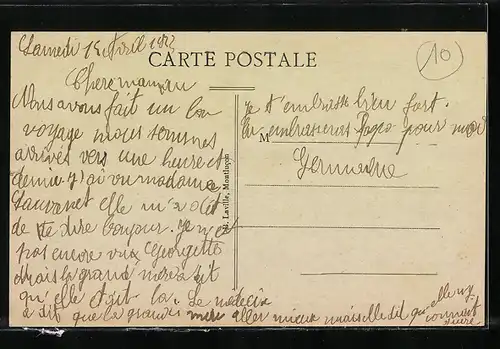 Samedi 15 Avril 1922
CARTE POSTALE
10
Chere maman
Nous avons fait un bon
voyage nous sommes
arrivés vers une heure et
demie j'ai vu madame
elle m'a dit
de te dire bonjour. Je n'ai
pas encore vux Georgette
mais la grand mere a dit
qu'elle était la le medecin
a dit que la grand mere aller mieux mais elle dit qu'elle
Je t'embrasse bien fort.
Tu embrasseras Papa pour moi
M
Germaine
Ed. Laville, Montluçon